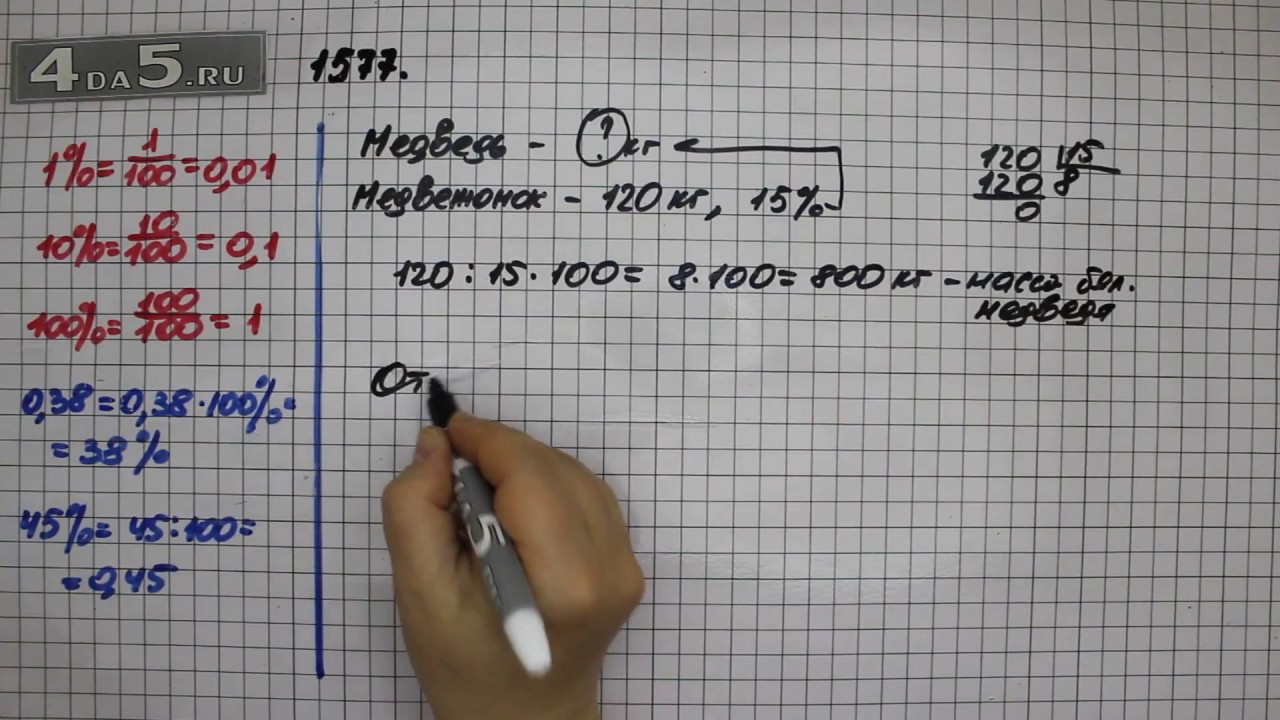 4DA5.RU
1577.
1% = 1/100 = 0,01
10% = 10/100 = 0,1
100% = 100/100 = 1
0,38 = 0,38 · 100% =
= 38%
45% = 45 : 100 =
= 0,45
Медведь - ? кг
Медветонок - 120 кг, 15%
120 : 15 · 100 = 8 · 100 = 800 кг - масса бел.
медведя
120 15
120 8
0
От